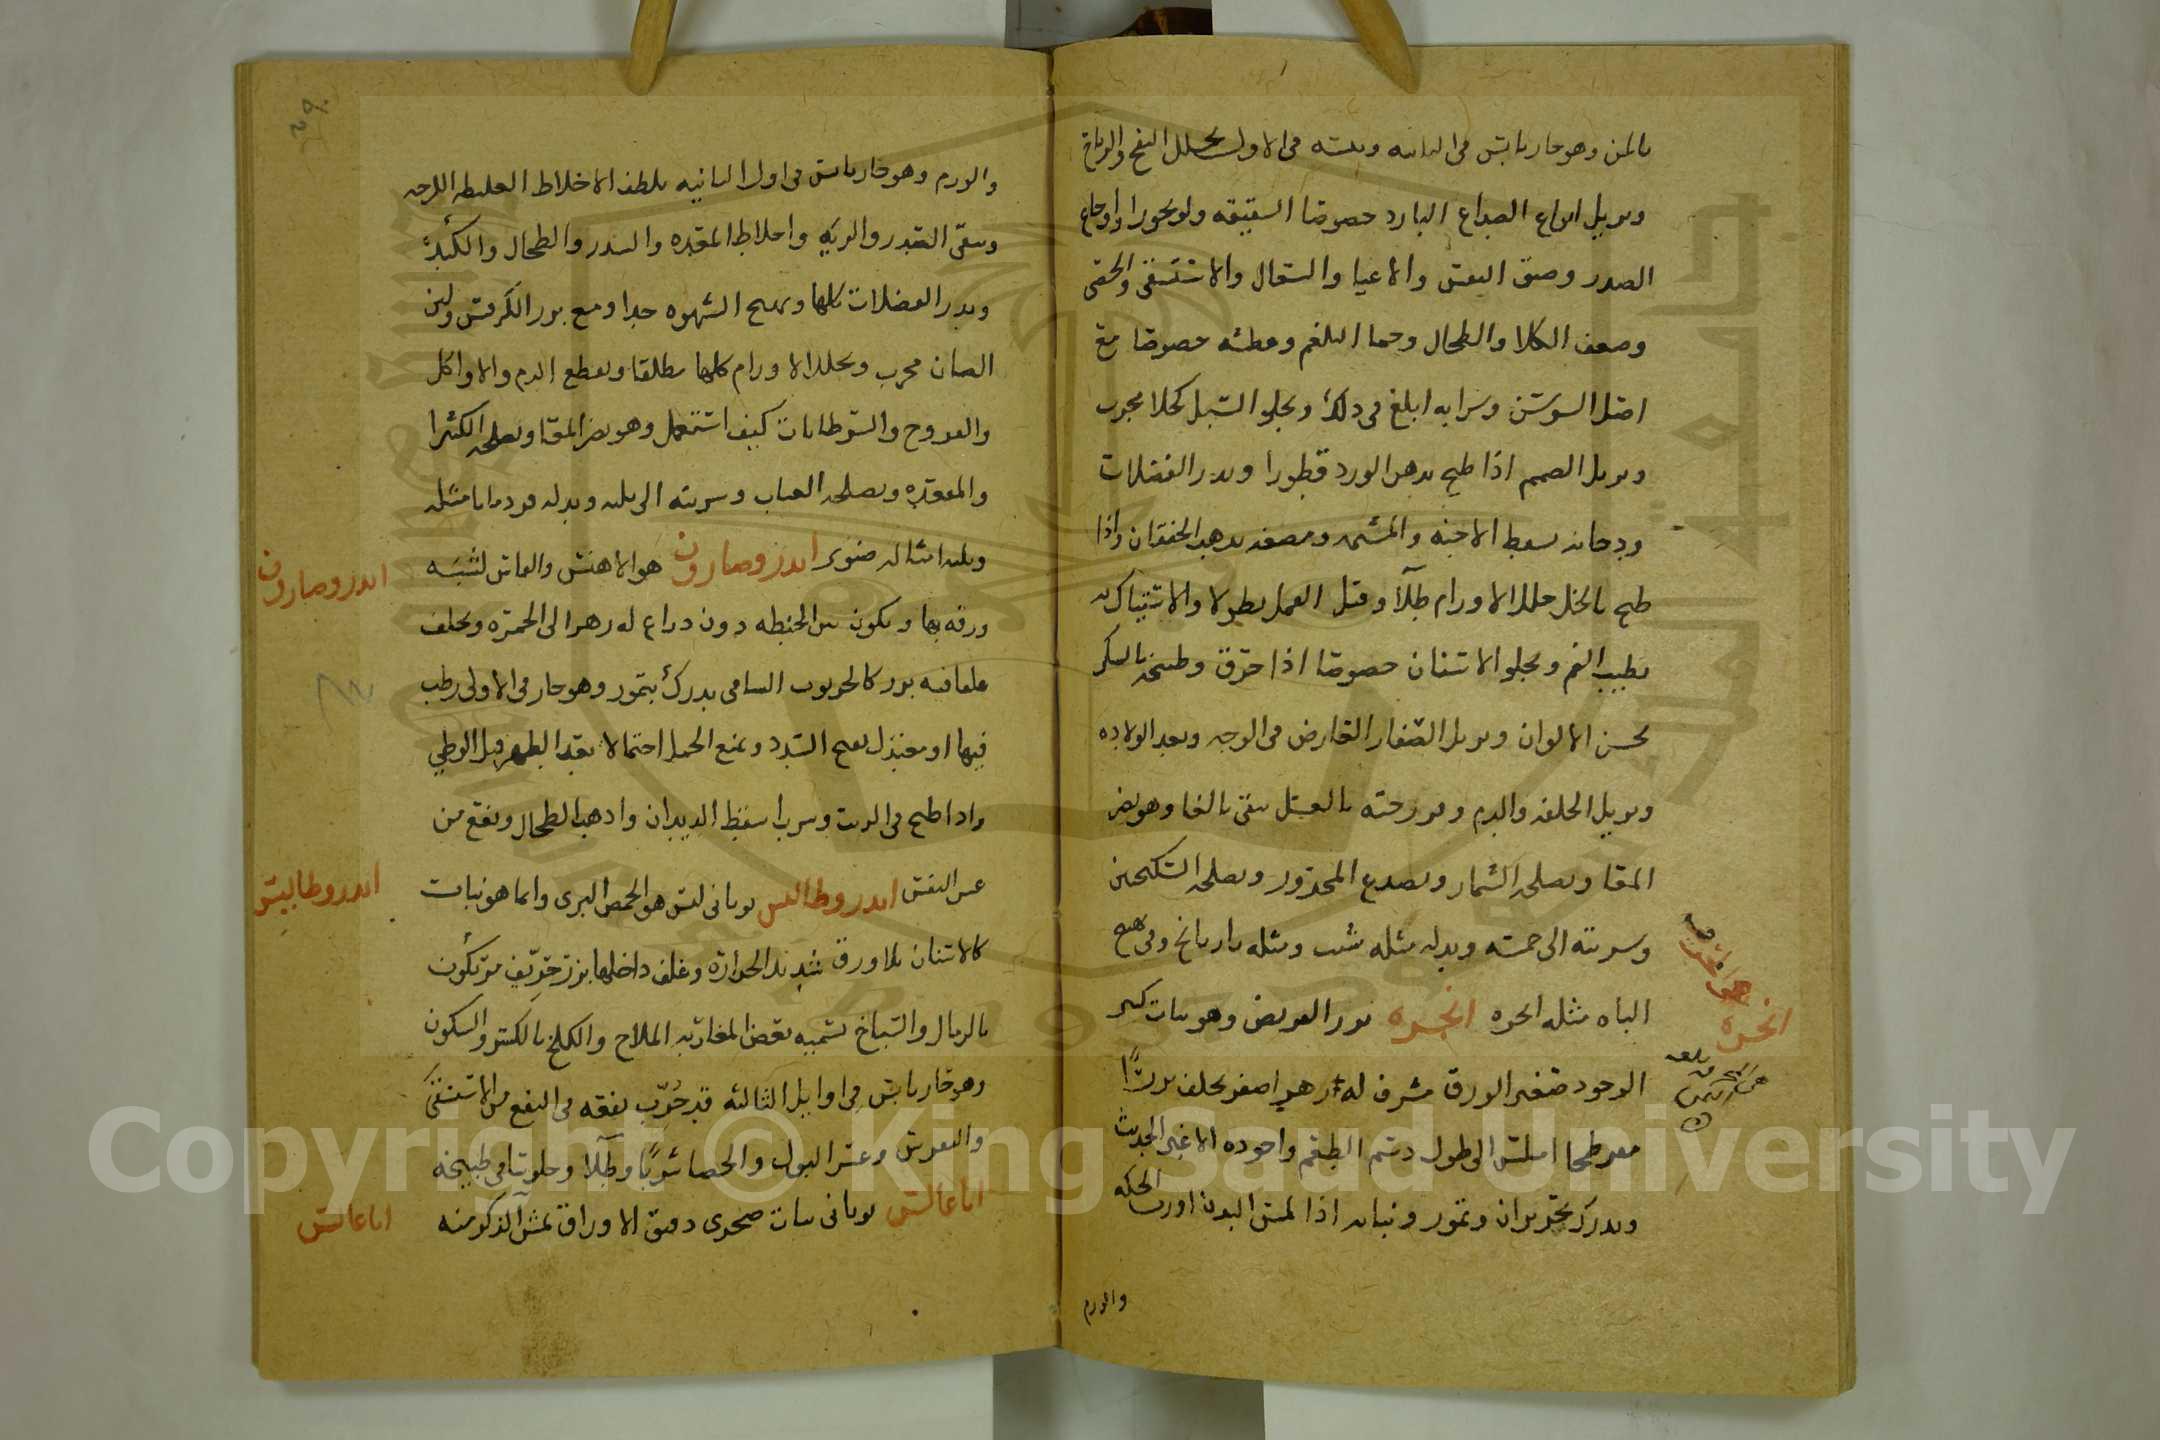 باللبن وهو حار يابس في الثانية ويبسه في الاولى يحلل النفخ والرياح
ويزيل انواع الصداع البارد خصوصا الشقيقه ولو بخورا واوجاع
الصدر وضيق النفس والاعيا والسعال والاستسقى والحصى
وضعف الكلا والطحال وحما البلغم وعطشه خصوصا مع
اصل السوسن وشرابه ابلغ في ذلك ويجلو السبل كحلا مجرب
ويزيل الصمم اذا طبخ بدهن الورد قطورا ويدر الفضلات
ودخانه يسقط الاجنه والمشيمه ومضغه يذهب الخفقان واذا
طبخ بالخل حلل الاورام طلآ وقتل القمل نطولا والاستياك به
يطيب الفم ويجلو الاسنان خصوصا اذا حرق وطبيخه بالسكر
يحسن الالوان ويزيل الصفار العارض في الوجه وبعد الولاده
ويزيل الخلفه والدم وفرزجته بالعسل تنقى بالغا وهو يضر
المعا ويصلحه الشمار ويصدع المحرور ويصلحه السكنجبين
وشربته الى خمسه وبدله مثله شبت ومثله رازيانج وفي تهييج
الباه مثله انجره انجره بزر القريص وهو نبات كثير
الوجود صغير الورق مشرف له زهر اصفر يخلف بزرًا
مفرطحا املس الى طول دسم الطعم واجوده الاغبر الحديث
ويدرك بحزيران وتموز ونباته اذا لمس البدن اورث الحكه
والورم
انجره
والورم وهو حار يابس في اول الثانيه يلطف الاخلاط الغليظه اللزجه
وينقى الصدر والريه واخلاط المعده والسدر والطحال والكبد
ويدر الفضلات كلها ويهيج الشهوه جدا ومع بزر الكرفس ولبن
الضان مجرب ويحلل الاورام كلها مطلقا ويقطع الدم والاواكل
والقروح والسرطانات كيف استعمل وهو يضر المعا ويصلحه الكثيرا
والمقعده ويصلحه العناب وشربته الى ثلثه وبدله قردمانا مثله
وثلثه امثاله صنوبر اندروصارون هو الاهنس والفاس لشبه
ورقه بها ويكون بين الحنطه دون ذراع له زهر الى الحمره ويخلف
غلفا فيه بزر كالخرنوب الشامي يدرك بتموز وهو حار في الاولى رطب
فيها او معتدل يفتح السدد ويمنع الحمل احتمالا بعد الطهر قبل الوطي
واذا طبخ في الزيت وشرب اسقط الديدان واذهب الطحال ونفع من
عسر النفس اندروطاليس يوناني ليس هو الحمص البرى وانما هو نبات
كالاشنان بلا ورق شديد الحرارة وغلف داخلها بزر حريف مر يكون
بالرمال والسباخ تسميه بعض المغاربه الملاح والكلخ بالكسر والسكون
وهو حار يابس في اوايل الثالثه قد جُرّب نفعه في النفع من الاستسقى
والنقرس وعسر البول والحصا شربًا وطلآ وجلوسا في طبيخه
اناغالس يوناني نبات صخرى دقيق الاوراق لمس الذكر منه
اندروصارون
اندروطاليس
اناغالس
Copyright © King Saud University